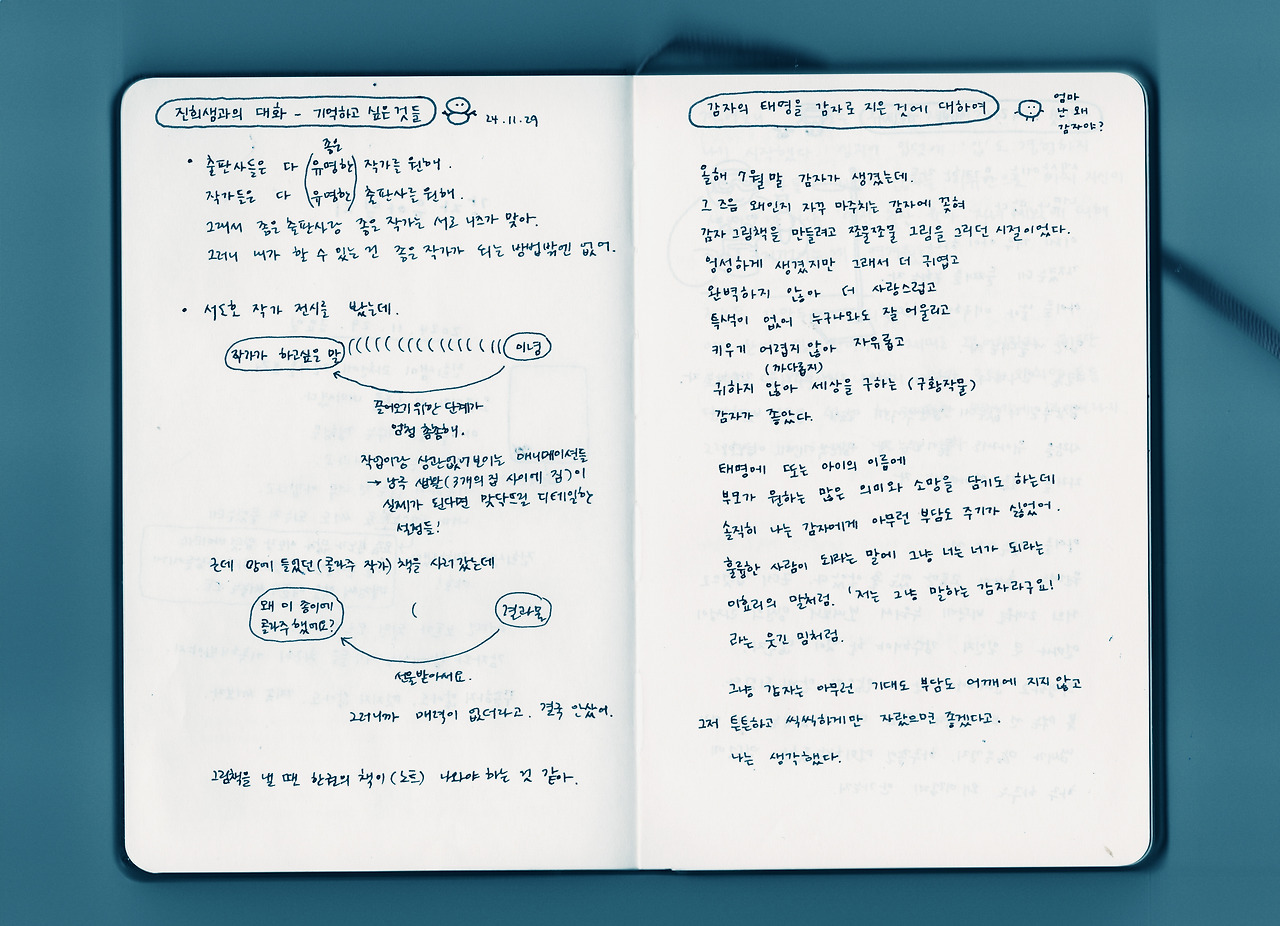 진희쌤과의 대화 - 기억하고 싶은것들
24.11.29
• 출판사들은 다 (유명한) 작가를 원해.
좋은
작가들은 다 (유명한) 출판사를 원해.
그래서 좋은출판사랑 좋은 작가는 서로 니즈가 맞아.
그러니 내가 할 수 있는건 좋은 작가가 되는 방법밖엔 없어.
• 서도호 작가 전시를 봤는데.
작가가 하고싶은 말
이녕
끌어오기위한 단계가
엄청 촘촘해.
작업이랑 상관없어보이는 애니메이션들
→ 남극 생활(3개의집 사이에 집)이
실제가 된다면 맞닥뜨릴 디테일한
설정들!
근데 맘에 들었던(콜라주 작가)책을 사러갔는데
왜 이 종이에
콜라주했어요?
(
결과물
선물받아서요.
그러니까 매력이 없더라고. 결국 안샀어.
그림책을 낼 때 한권의 책이(노트) 나와야 하는 것 같아.
감자의 태명을 감자로 지은 것에 대하여
엄마
난 왜
감자야?
올해 7월말 감자가 생겼는데.
그 즈음 왜인지 자꾸 마주치는 감자에 꽂혀
감자 그림책을 만들려고 조물조물 그림을 그리던 시절이었다.
엉성하게 생겼지만 그래서 더 귀엽고
완벽하지 않아 더 사랑스럽고
특색이 없어 누구나와도 잘 어울리고
키우기 어렵지 않아 자유롭고
(까다롭지)
귀하지 않아 세상을 구하는 (구황작물)
감자가 좋았다.
태명에 또는 아이의 이름에
부모가 원하는 많은 의미와 소망을 담기도 하는데
솔직히 나는 감자에게 아무런 부담도 주기가 싫었어.
훌륭한 사람이 되라는 말에 그냥 너는 너가 되라는
이효리의 말처럼. '저는 그냥 말하는 감자라구요!'
라는 웃긴 밈처럼.
그냥 감자는 아무런 기대도 부담도 어깨에 지지 않고
그저 튼튼하고 씩씩하게만 자랐으면 좋겠다고.
나는 생각했다.